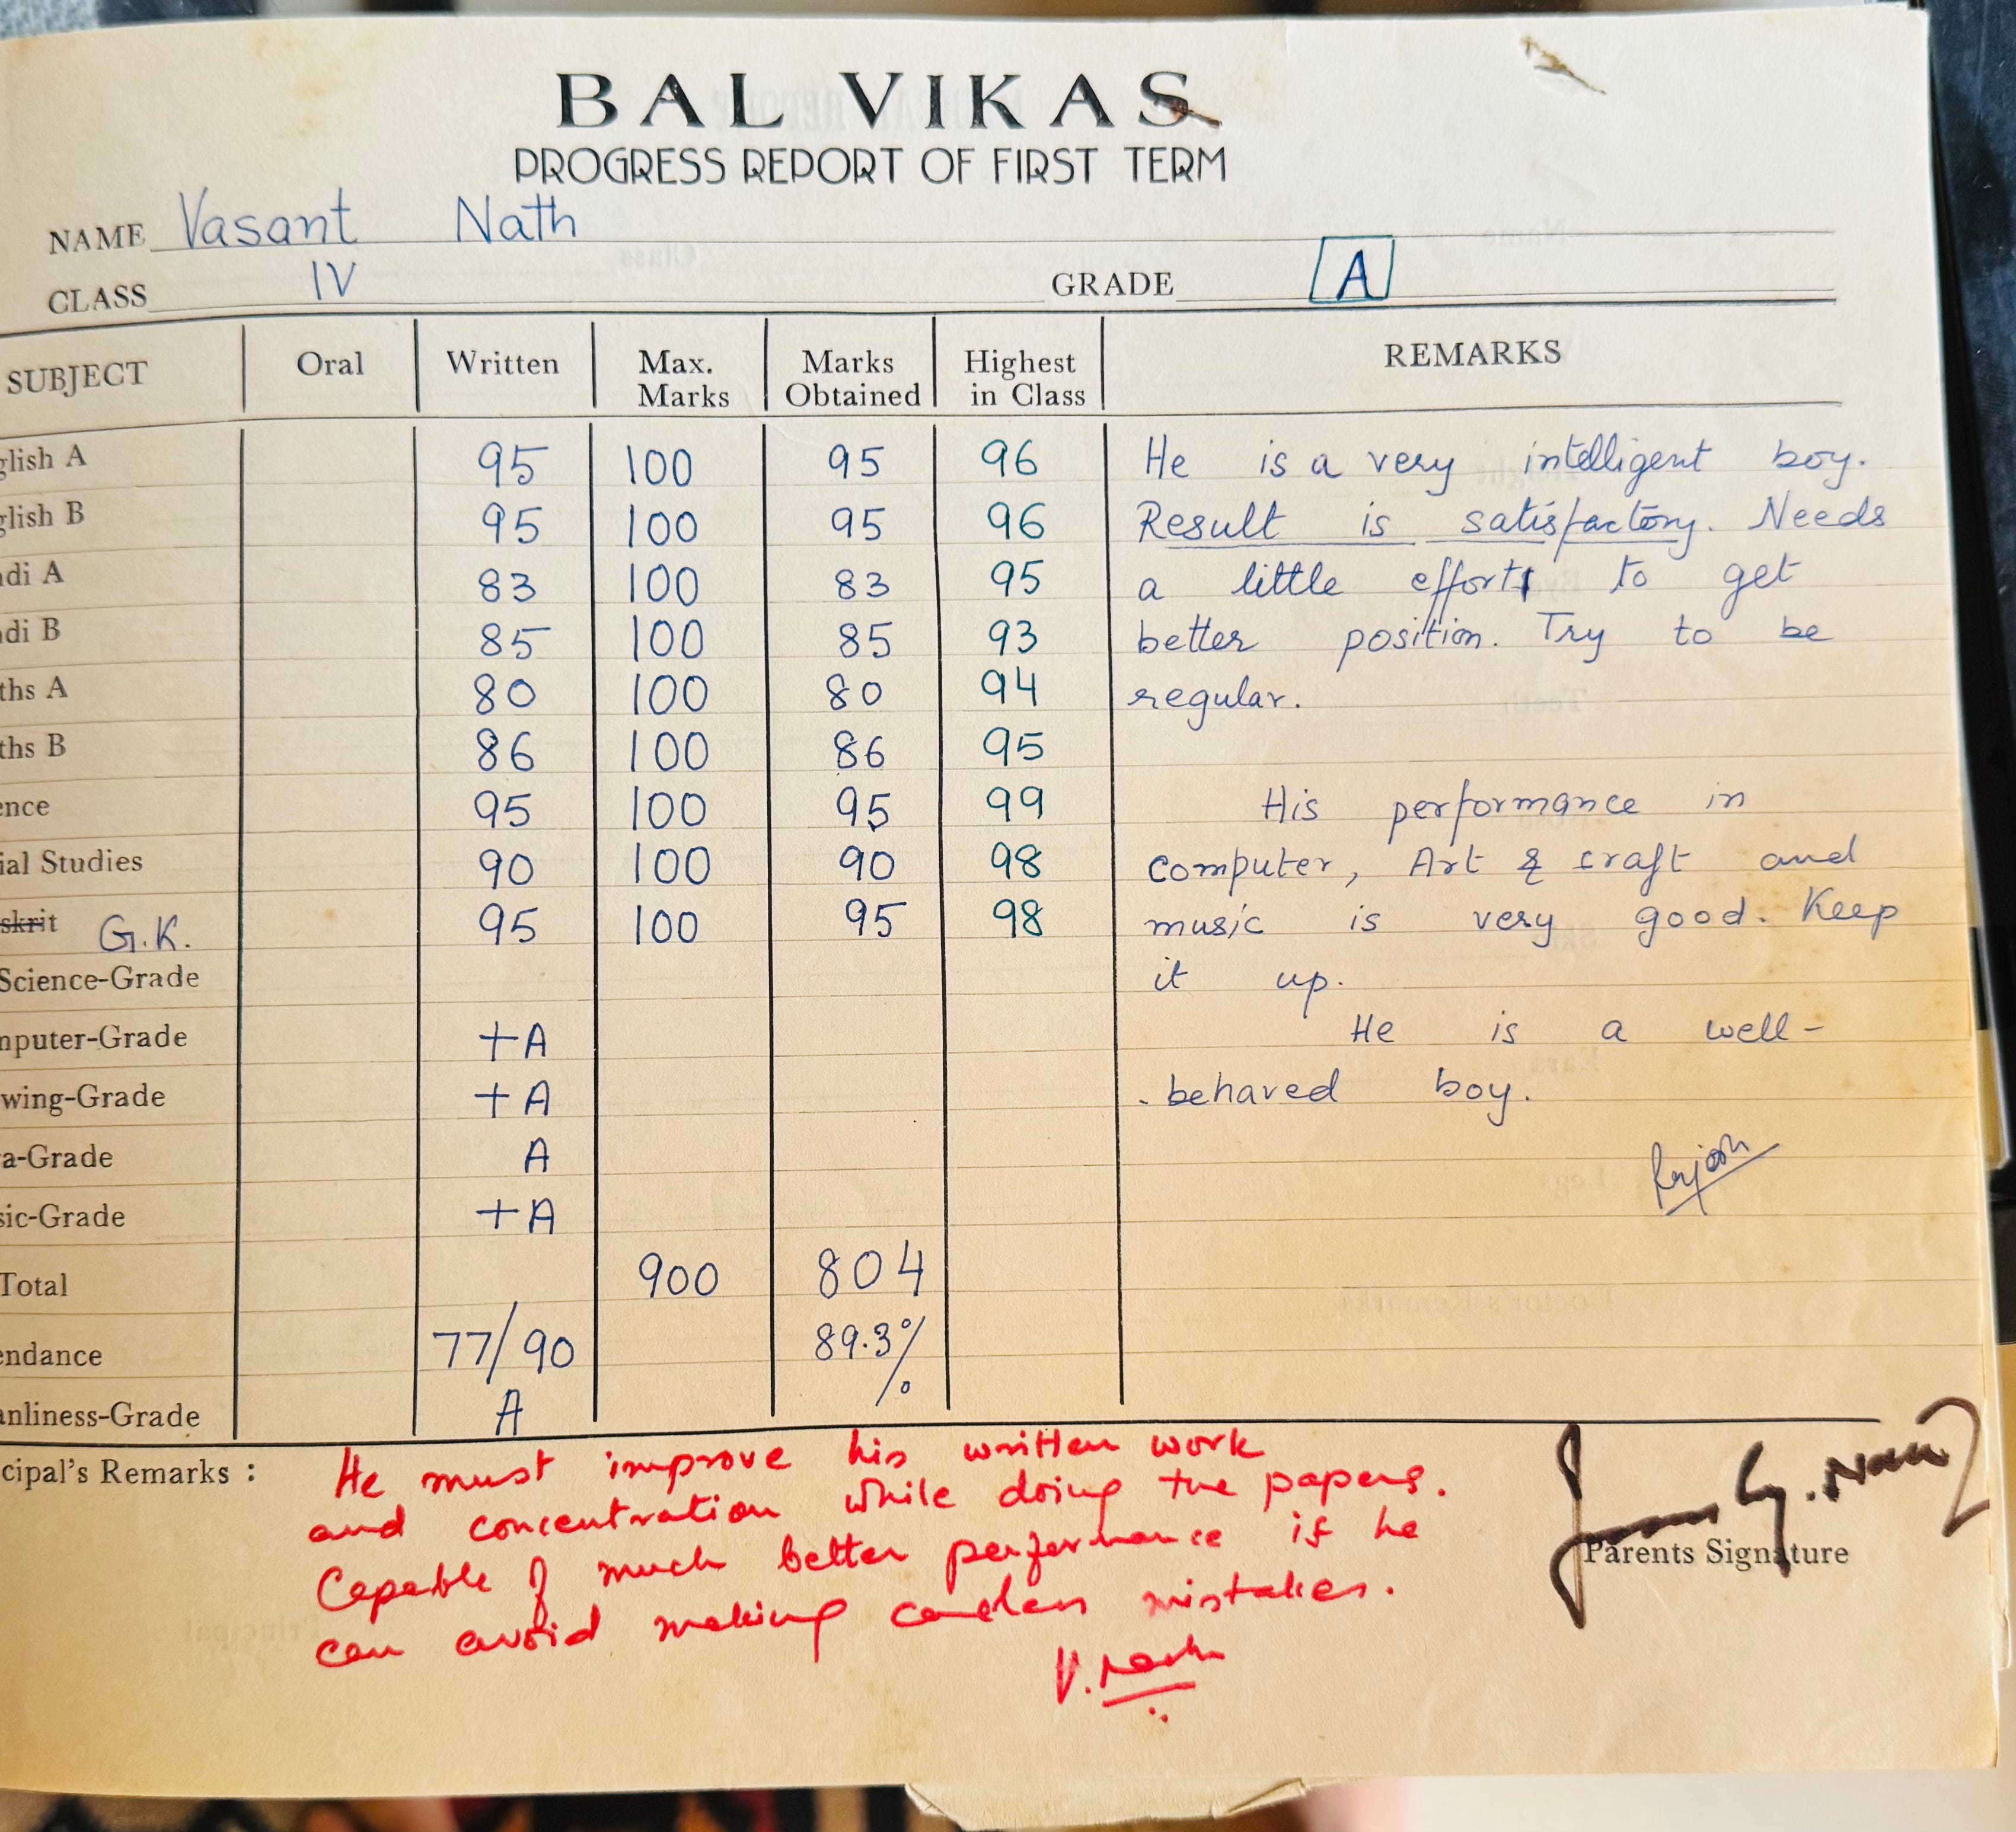 BAL VIKAS
PROGRESS REPORT OF FIRST TERM
NAME Vasant Nath
CLASS IV GRADE A
SUBJECT Oral Written Max. Marks Marks Obtained Highest in Class REMARKS
glish A 95 100 95 96 He is a very intelligent boy.
glish B 95 100 95 96 Result is satisfactory. Needs
di A 83 100 83 95 a little effort to get
di B 85 100 85 93 better position. Try to be
ths A 80 100 80 94 regular.
ths B 86 100 86 95
ence 95 100 95 99 His performance in
ial Studies 90 100 90 98 computer, Art & craft and
skrit G.K. 95 100 95 98 music is very good. Keep
Science-Grade it up.
mputer-Grade +A He is a well-
wing-Grade +A - behaved boy.
a-Grade A
sic-Grade +A
Total 900 804
endance 77/90 89.3%
anliness-Grade A
cipal's Remarks : He must improve his written work
and concentration while doing the papers.
Capable of much better performance if he
can avoid making careless mistakes.
Parents Signature